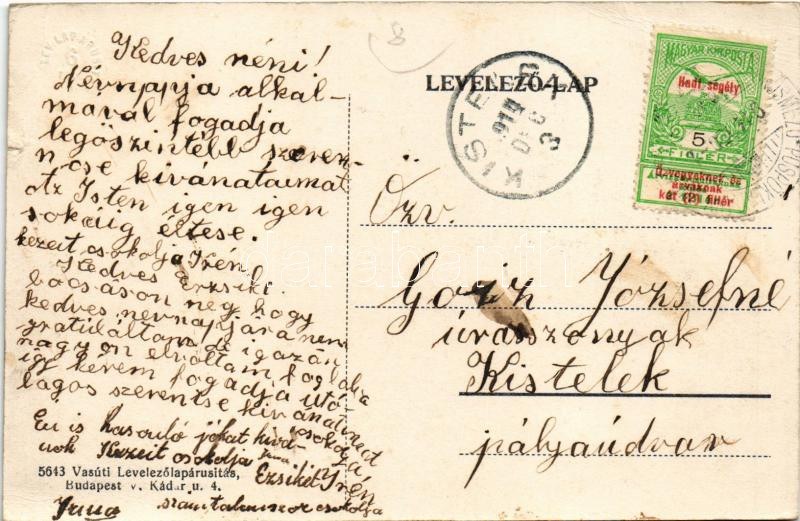 Kedves néni!
Névnapja alkal-
mával fogadja
legöszintébb szeren-
cse kivánataimat
Az Isten igen igen
sokáig éltese.
kezeit csokolja Irén
Kedves Erzsiki
bocsáson meg hogy
kedves nevnapjára nem
gratuláltam de igazán
nagyon elvoltam foglalva
igy kérem fogadja utó-
lagos szerentse kivánatimat
csokolja
Irén
Én is hasonló jókat kivá
nok Kezeit csokolja
Ezsikét
Irma
számtalanszor csokolja
5643 Vasúti Levelezőlapárusitás,
Budapest V. Kádár u. 4.
LEVELEZŐ-LAP
KISTELEK
914 DEC 3
MAGYAR KIR. POSTA
Hadi segély
5
FILLÉR
Özvegyeknek és
árváknak
két (2) fillér
Özv.
Józsefné
úrasszonyak
Kistelek
pályaúdvar
8